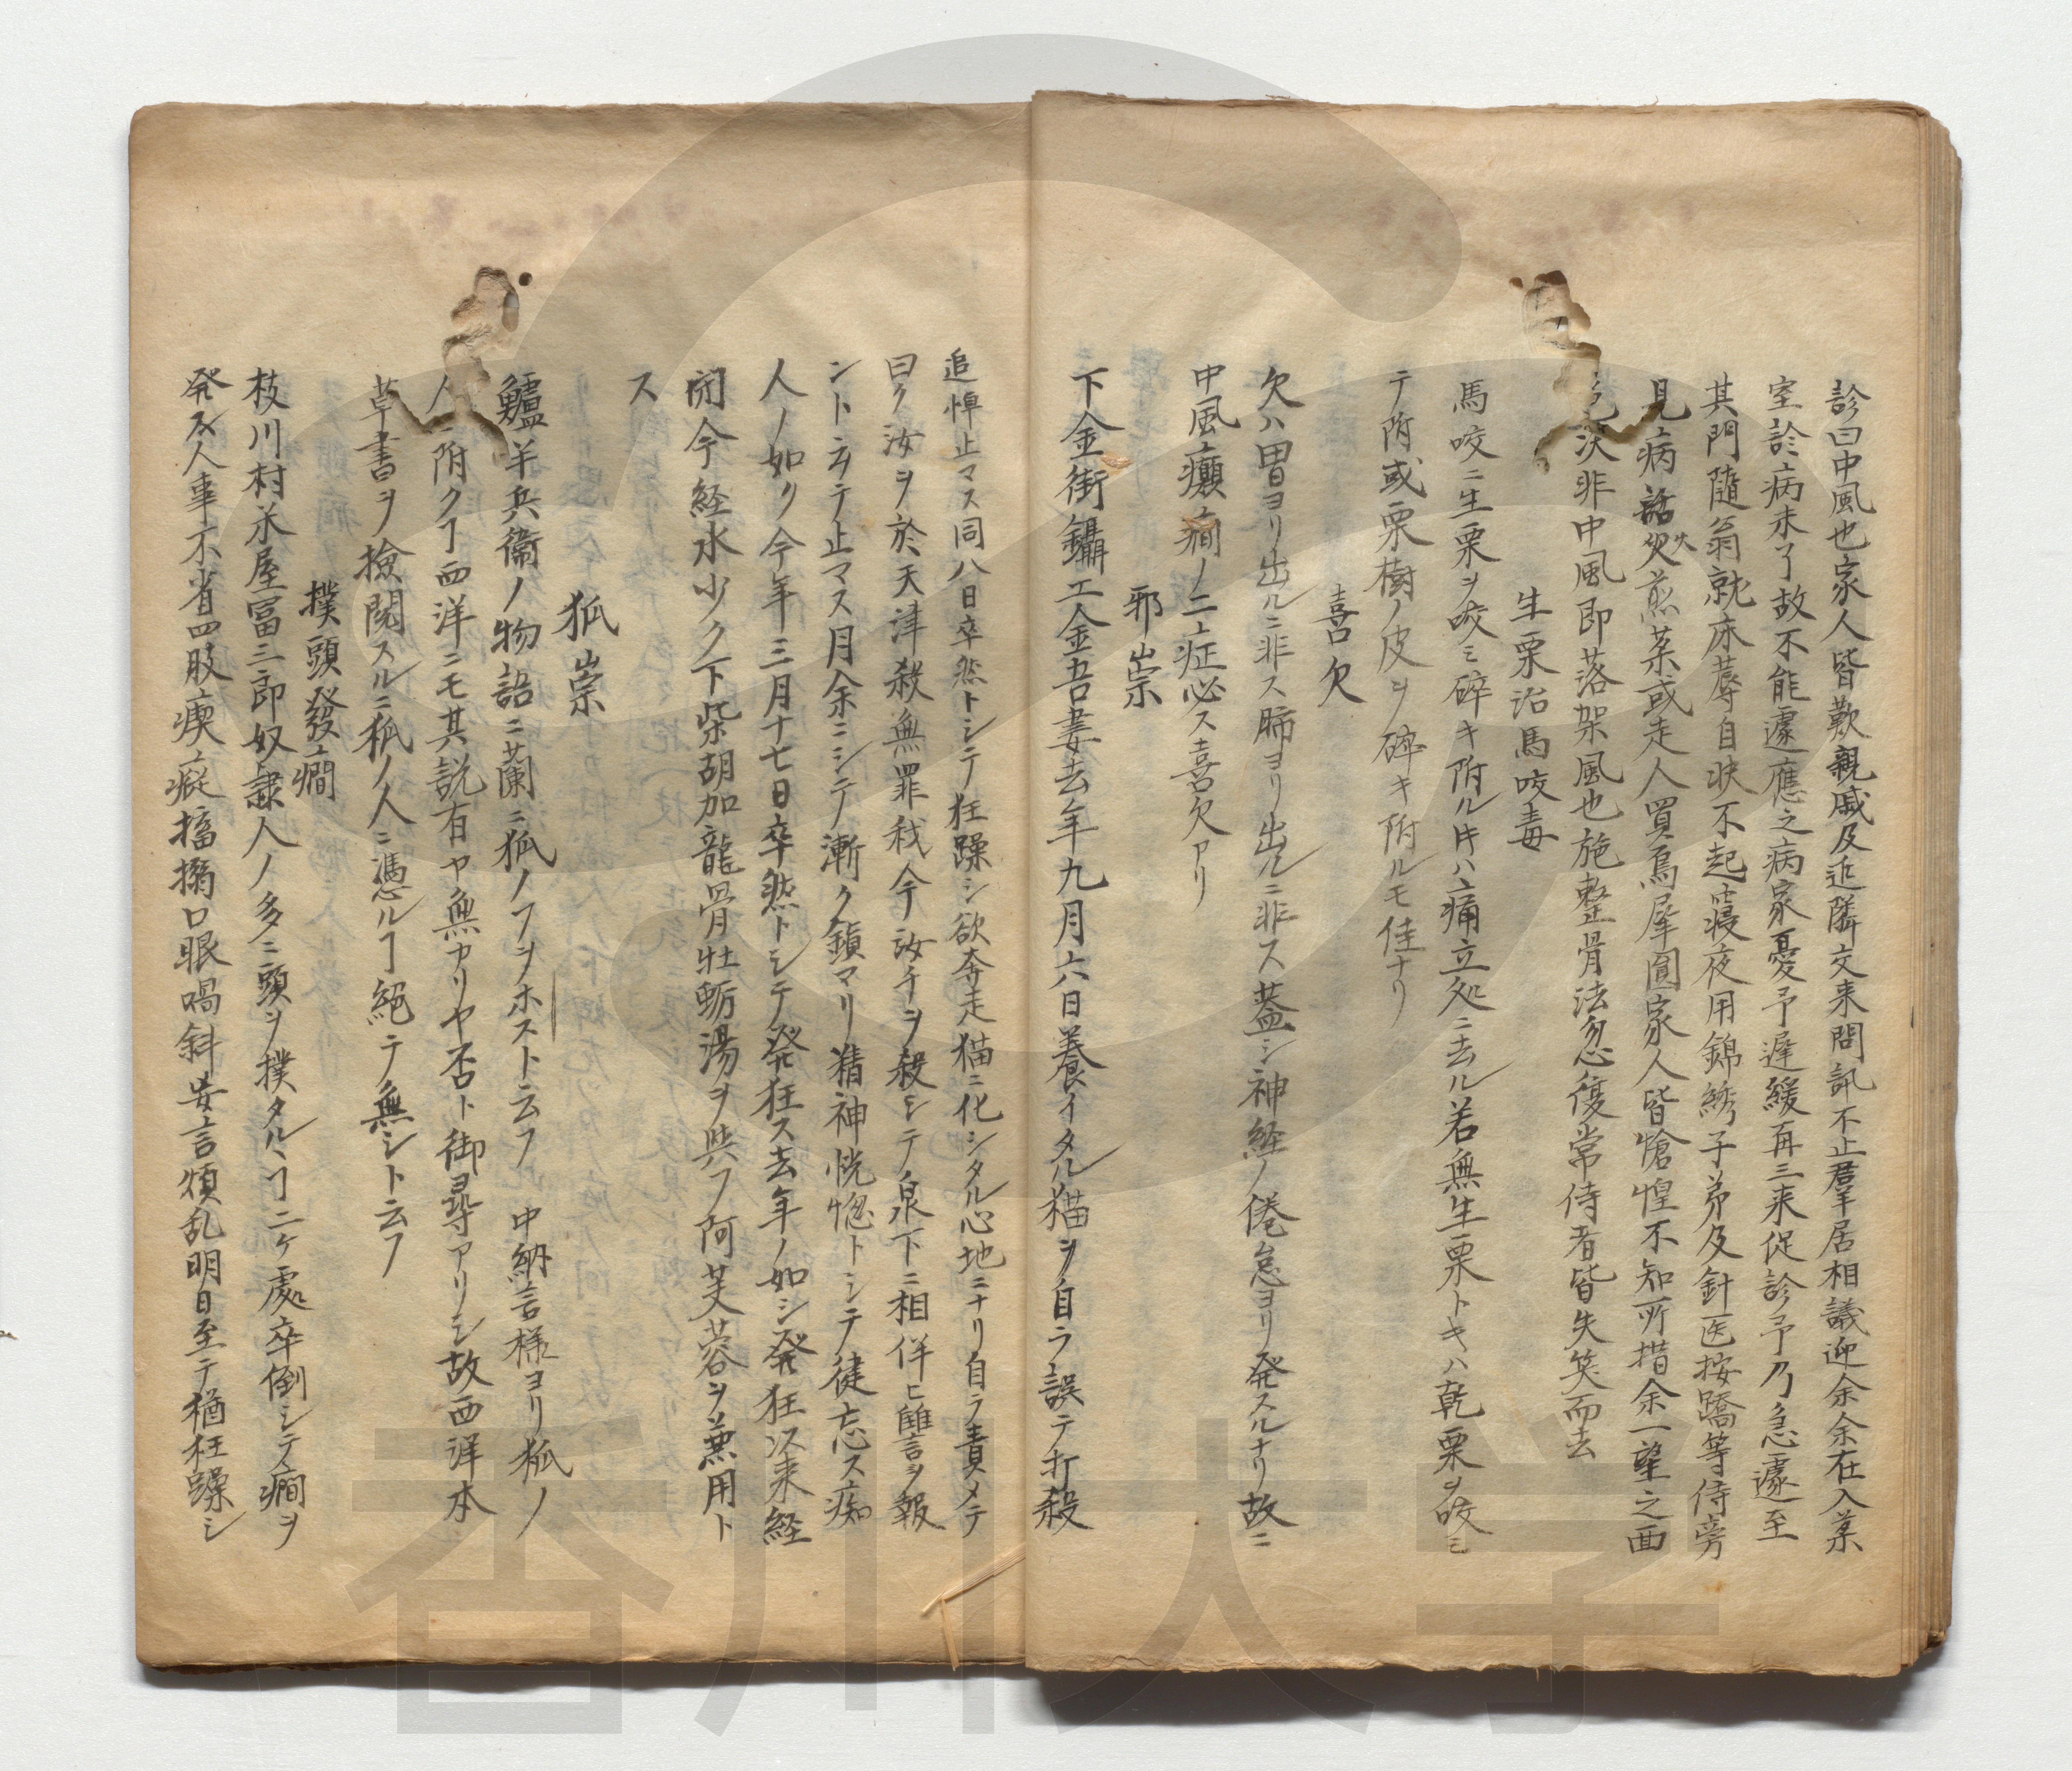 診曰中風也家人皆歎親戚及近隣交来問訊不止羣居相議迎余余在入某
室診病未了故不能遽應之病家憂予遅緩再三来促診予乃急遽至
其門隨翁就床蓐自状不起寝夜用錦綉子弟及針医按蹻等侍旁
見病 煎某或走人買烏犀圓家人皆愴惶不知所措余一望之面
決非中風即落架風也施整骨法忽復常侍者皆失笑而去
生栗治馬咬毒
馬咬ニ生栗ヲ咬ミ碎キ附ル𪜈ハ痛立処ニ去ル若無生栗トキハ乾栗ヲ咬ミ
テ附或栗樹ノ皮ヲ碎キ附ルモ佳ナリ
喜欠
欠ハ胃ヨリ出ルニ非ス肺ヨリ出ルニ非ス蓋シ神経ノ倦怠ヨリ発スルナリ故ニ
中風癲癇ノ二症必ス喜欠アリ
邪祟
下金街鑷工金吾妻去年九月六日養イタル猫ヲ自ラ誤テ打殺
追悼止マス同八日卒然トシテ狂躁シ欲奔走猫ニ化シタル心地ニナリ自ラ責メテ
曰ク汝ヲ於天津殺無罪我今汝チヲ殺シテ泉下ニ相伴ヒ讐ヲ報
ントテ止マス月余ニシテ漸ク鎮マリ精神恍惚トシテ健忘ス痴
人ノ如ク今年三月十七日卒然トシテ発狂ス去年ノ如シ発狂以来経
閉今経水少ク下柴胡加龍骨牡蛎湯ヲ與フ阿芙蓉ヲ兼用ト
ス
狐祟
鱸半兵衞ノ物語ニ蘭ニ狐ノフヲホスト云フ 中納言様ヨリ狐ノ
人ニ附クヿ西洋ニモ其説有ヤ無アリヤ否ト御尋アリシ故西洋本
草書ヲ撿閲スルニ狐ノ人ニ憑ルヿ絕テ無シト云フ
撲頭發癇
枝川村米屋冨三郎奴隷人ノ多ニ頭ヲ撲タルヿ二ケ處卒倒シテ癇ヲ
発ス人事不省四肢瘈瘲搐搦口眼喎斜妄言煩乱明日至テ猶狂躁シ